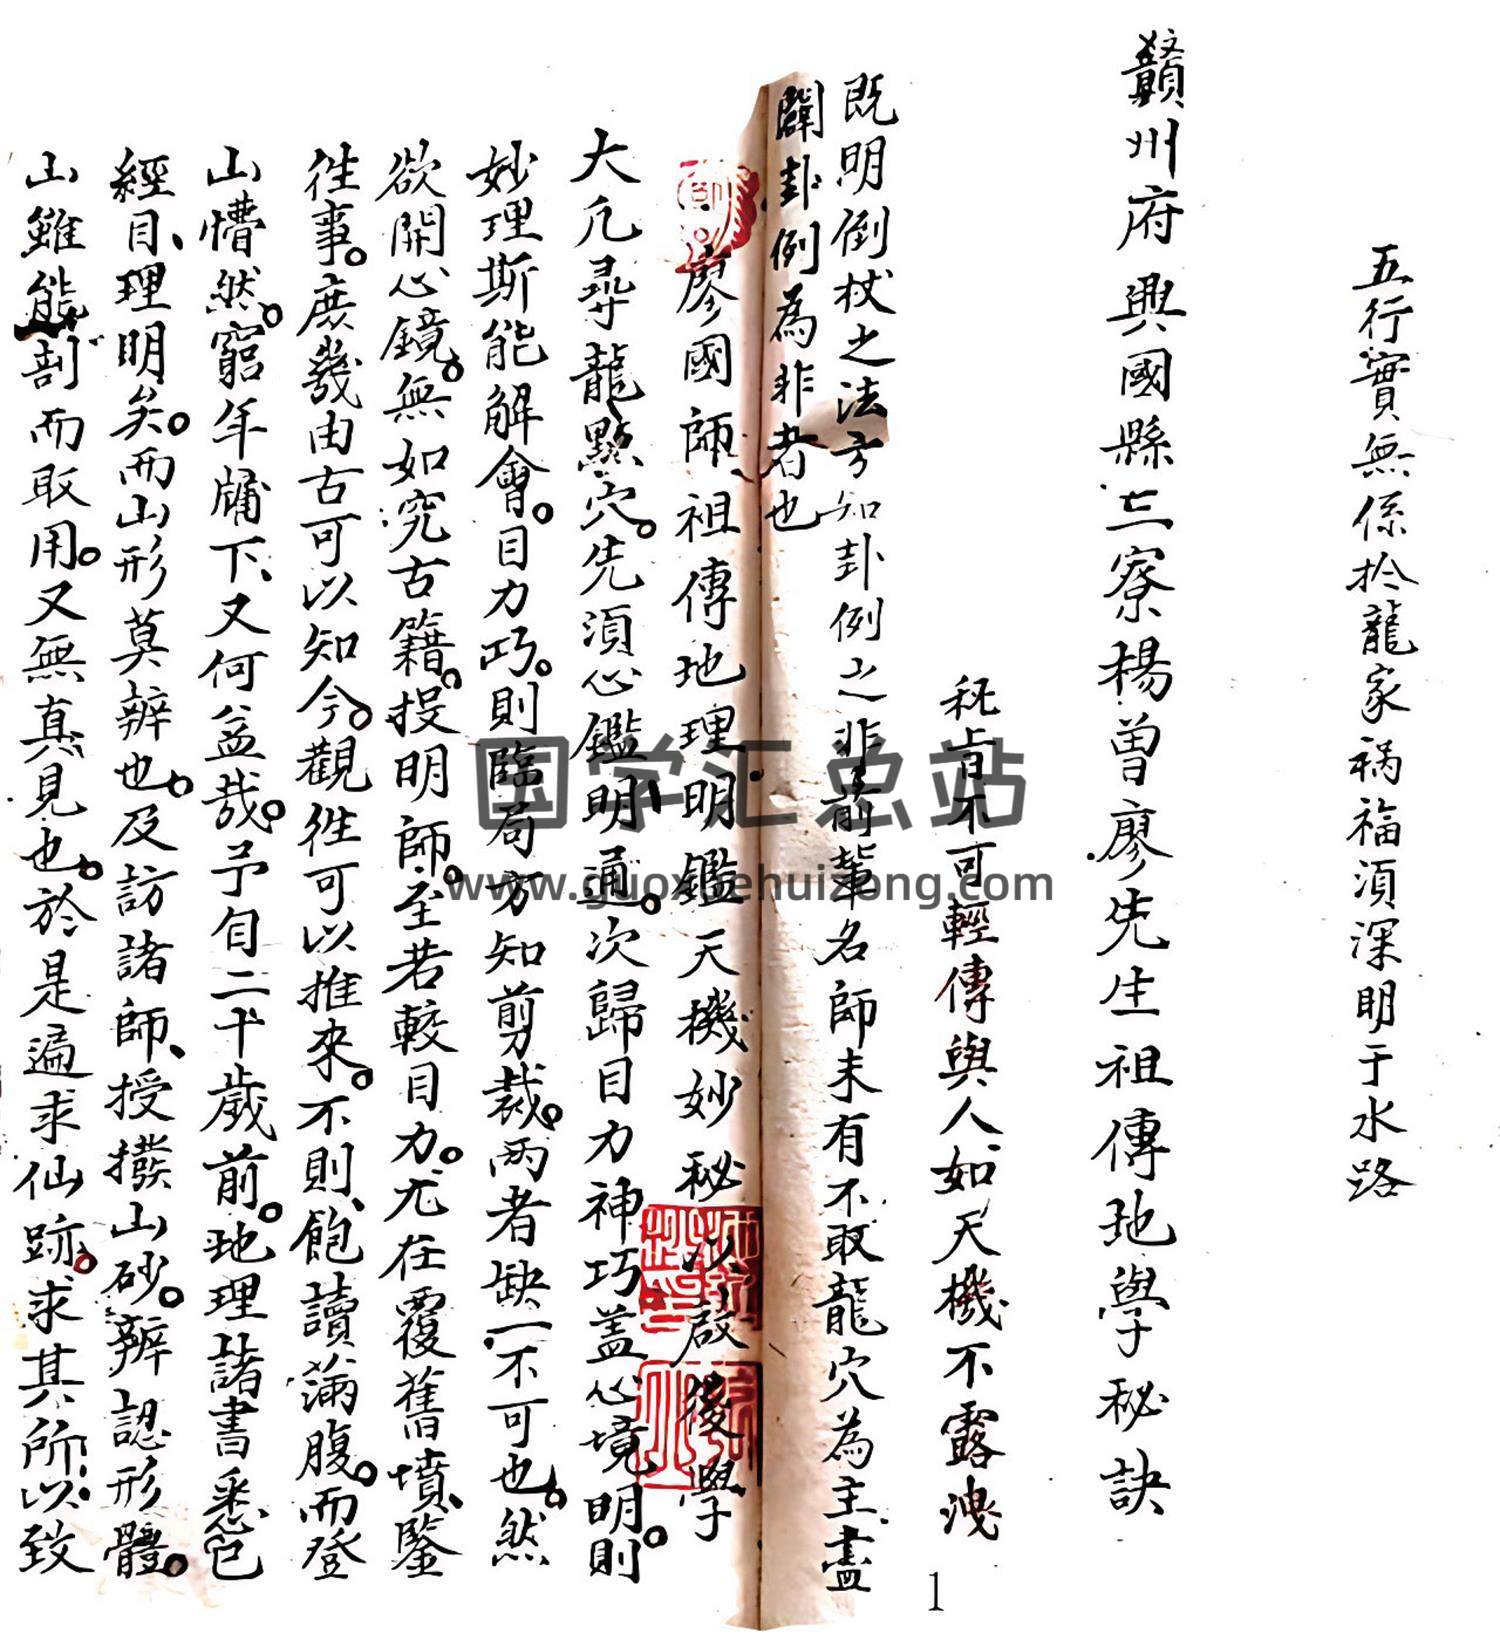 五行實無係扵龍家禍福須深明于水路
贛州府興國縣三寮楊曾廖先生祖傳地學秘訣
秘旨不可輕傳與人如天機不露洩
既明倒杖之法方知卦例之非前輩名師未有不取龍穴為主盡
闢卦例為非者也
廖國師祖傳地理明鑑天機妙秘以啟後學
大凡尋龍點穴。先須心鑑明通。次歸目力神巧盖心境明。則
妙理斯能解會。目力巧。則臨局方知剪裁。兩者缺一不可也。然
欲開心鏡。無如究古籍。授明師。至若較目力。尤在覆舊墳、鑒
徃事。庶幾由古可以知今。觀徃可以推來。不則、飽讀滿腹。而登
山懵然。窮年牖下、又何益哉。予自二十歲前。地理諸書悉已
經目、理明矣。而山形莫辨也。及訪諸師、授撥山砂。辨認形體。
山雖能剖而取用。又無真見也。於是遍求仙跡。求其所以致
国学汇总站
www.guoxuehuizong.com
1